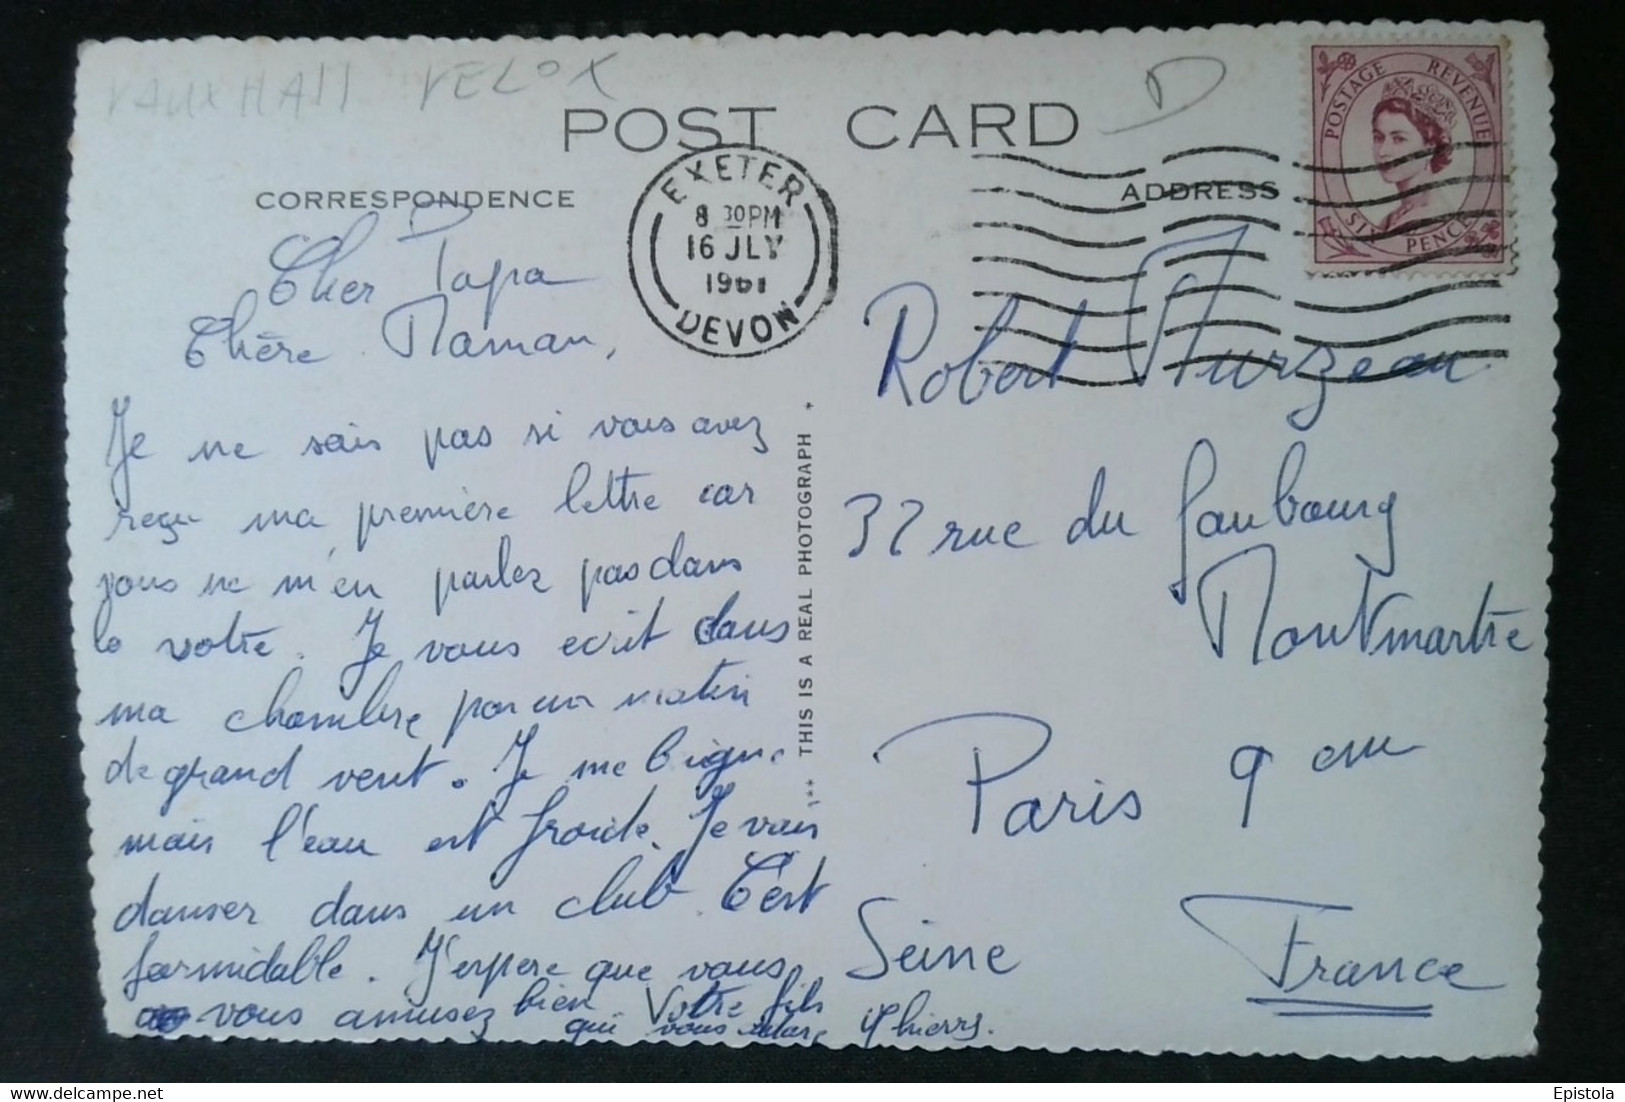 VAUXHALL VELOX
D
POST CARD
CORRESPONDENCE
ADDRESS
EXETER
8 30 PM
16 JLY
1961
DEVON
POSTAGE REVENUE
SIX PENCE
Cher Papa
Chère Maman,
Je ne sais pas si vous avez
reçu ma première lettre car
vous ne m'en parlez pas dans
la votre. Je vous ecrit dans
ma chambre par un matin
de grand vent. Je me baigne
mais l'eau est froide. Je vais
danser dans un club. C'est
formidable. J'espere que vous
vous amusez bien Votre fils
qui vous Thierry.
** THIS IS A REAL PHOTOGRAPH *
Robert
37 rue du faubourg
Montmartre
Paris 9 em
Seine
France
delcampe.net
Epistola